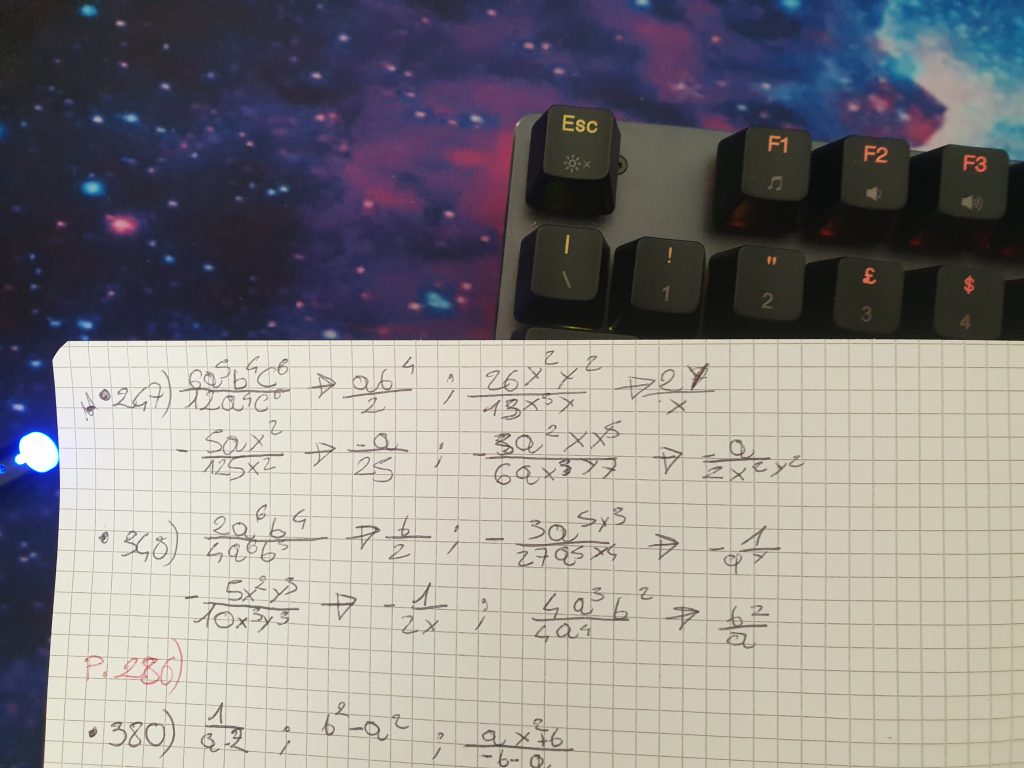 Esc
F1 F2 F3
| ! " £ $
\ 1 2 3 4
•247) 6a⁵b⁴c⁶/12a⁴c⁶ → ab⁴/2 ; 26x²y²/13x³y → 2y/x
- 5ax²/125x² → -a/25 ; - 3a²xy⁵/6ax³y⁷ → - a/2x²y²
•348) 2a⁶b⁴/4a⁶b³ → b/2 ; - 3a⁵x³/27a⁵x⁴ → - 1/9x
- 5x²y³/10x³y³ → - 1/2x ; 4a³b²/4a⁴ → b²/a
P. 286)
•380) 1/a-2 ; b²-a² ; ax²+6/-b-a